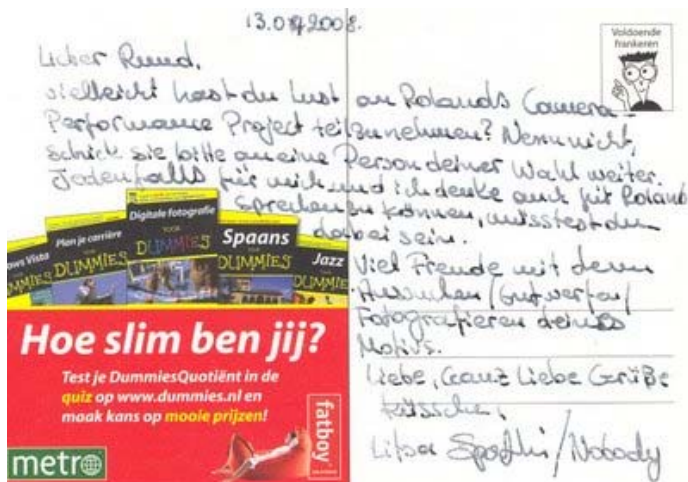 13.07.2008.
Lieber Ruud,
vielleicht hast du Lust an Rolands Camera-
Performance Project teilzunehmen? Wenn nicht,
schick sie bitte an eine Person deiner Wahl weiter.
Jedenfalls für mich und ich denke auch für Roland
sprechen zu können, müsstest du
dabei sein.
Viel Freude mit dem
Aussuchen/Entwerfen/
Fotografieren deines
Motivs.
Liebe, Ganz Liebe Grüße
Küsschen,
Litsa Spathi/Nobody
Voldoende
frankeren
Digitale fotografie
VOOR
DUMMIES
Plan je carrière
VOOR
DUMMIES
Spaans
DUMMIES
ows Vista
UMMIES
Jazz
DUMMIES
Hoe slim ben jij?
Test je DummiesQuotiënt in de
quiz op www.dummies.nl en
maak kans op mooie prijzen!
fatboy
metro